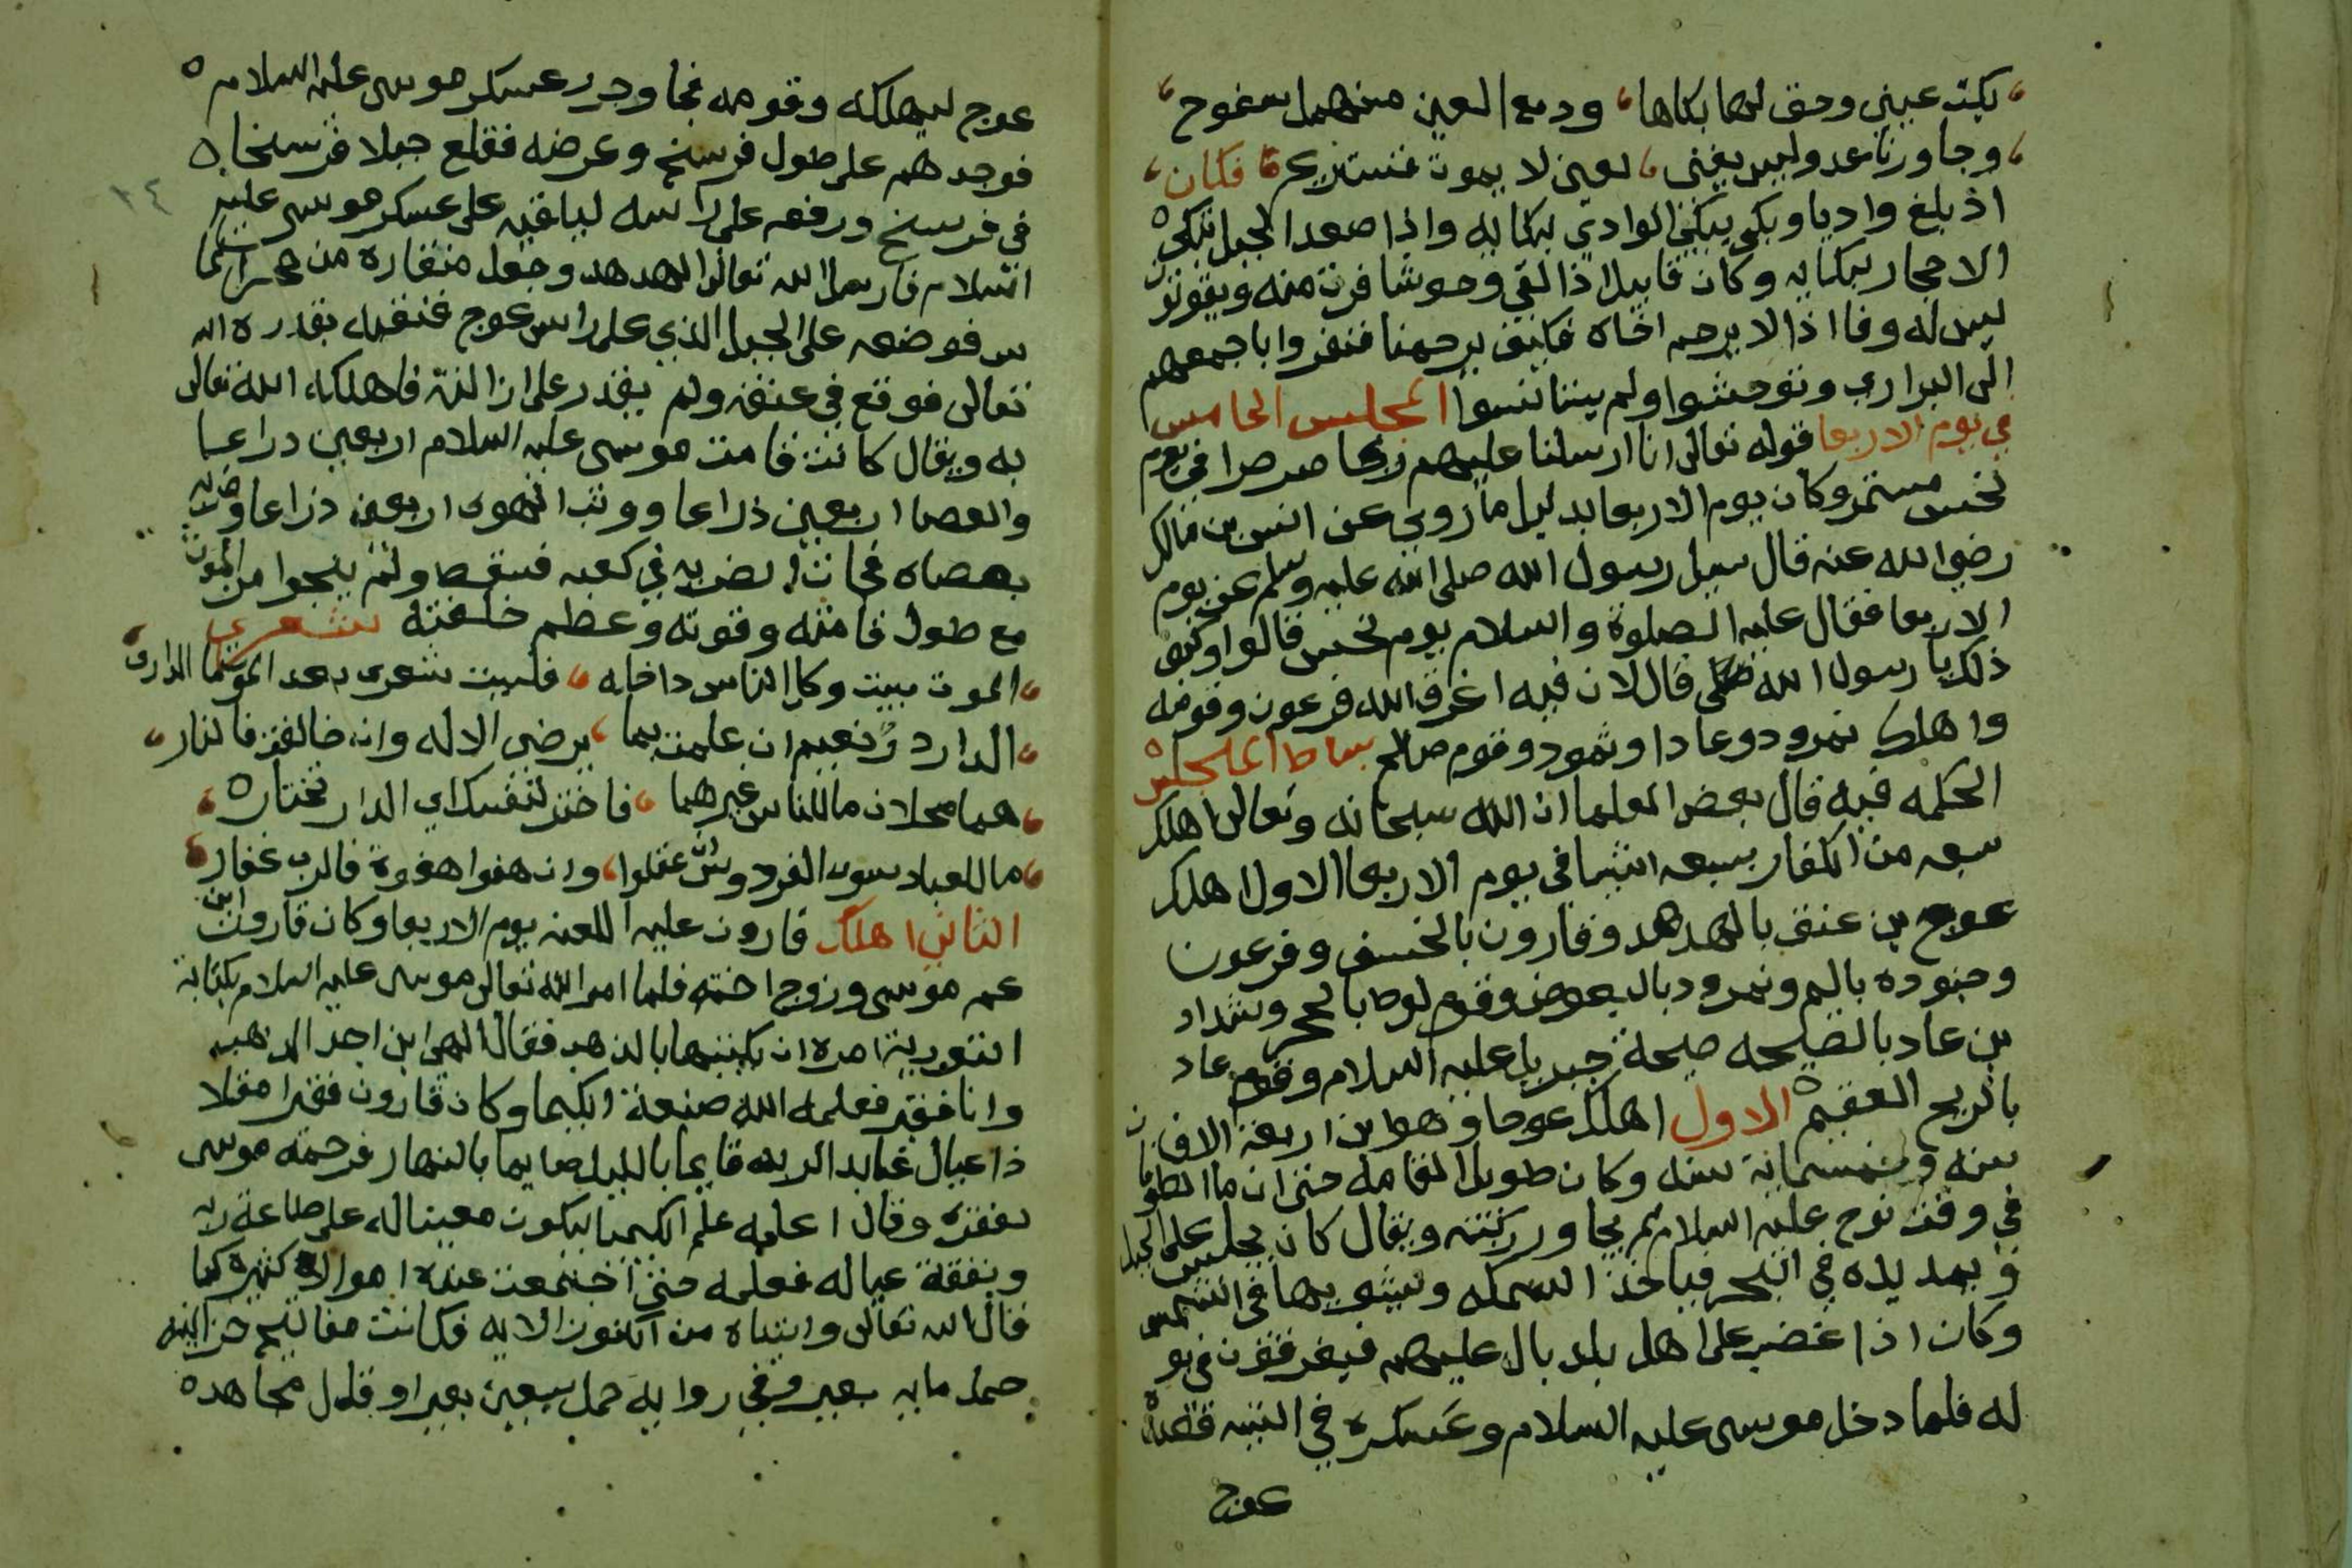 بكت عيني وحق لها بكاها ودمع العين منهمل سفوح
وجاورنا عدو ليس يفنى لعين لا يموت فنستريح فكان
اذ بلغ واديا وبكى يبكي الوادي لبكايه واذا صعد الجبل تبكي
الاحجار لبكايه وكان قابيل اذا لقي وحوشا فرت منه ويقولون
ليس له وفا اذا لا يرحم اخاه فكيف يرحمنا فنفروا باجمعهم
الى البراري وتوحشوا ولم يتنانسوا المجلس الخامس
في يوم الاربعا قوله تعالى انا ارسلنا عليهم ريحا صرصرا في يوم
نحس مستمر وكان يوم الاربعا بدليل ما روي عن انس بن مالك
رضي الله عنه قال سيل رسول الله صلى الله عليه وسلم عن يوم
الاربعا فقال عليه الصلوة والسلام يوم نحس قالوا وكيف
ذلك يا رسول الله قال لان فيه اغرق الله فرعون وقومه
واهلك نمرود وعادا وثمود وقوم صالح بساط المجلس
الحكمه فيه قال بعض العلما ان الله سبحانه وتعالى اهلك
سبعه من الكفار بسبعه اشيا في يوم الاربعا الاول اهلك
عوج بن عنق بالهدهد وقارون بالخسف وفرعون
وجنوده باليم ونمرود بالبعوض وقوم لوط بالحجر وشداد
بن عاد بالصيحه صيحة جبريل عليه السلام وقوم عاد
بالريح العقيم الاول اهلك عوجا وهو ابن اربعة الاف
سنه وخمسماية سنه وكان طويل القامه حتى ان ما الطوفان
في وقت نوح عليه السلام لم يجاوز ركبته ويقال كان يجلس على الجبل
ويمد يده في البحر فياخذ السمكه ويشويها في الشمس
وكان اذا غضب على اهل بلد بال عليهم فيغرقون في بو
له فلما دخل موسى عليه السلام وعسكره في التيه قصده
عوج
عوج ليهلكه وقومه فجا وحرر عسكر موسى عليه السلام
فوجدهم على طول فرسخ وعرضه فقلع جبلا فرسخا
في فرسخ ورفعه على راسه ليلقيه على عسكر موسى عليه
السلام فارسل الله تعالى الهدهد وجعل منقاره من حجر الما
س فوضعه على الجبل الذي على راس عوج فنقبه بقدرة الله
تعالى فوقع في عنقه ولم يقدر على ازالته فاهلكه الله تعالى
به ويقال كانت قامت موسى عليه السلام اربعين ذراعا
والعصا اربعين ذراعا ووثب الهوى اربعين ذراعا وضربه
بعصاه فجات الضربه في كعبه فسقط ولم ينجوا من الموت
مع طول قامته وقوته وعظم خلقته شعري
الموت بيت وكل الناس داخله فليت شعرى بعد الموت ما الدار
الدار دار نعيم ان علمت بما يرضى الاله وان خالفت فالنار
هما محلان ما للناس غيرهما فاختر لنفسك اي الدار تختار
ما للعباد سوى الفردوس ان عملوا وان هفوا هفوة فالرب غفار
الثاني اهلك قارون عليه اللعنه يوم الاربعا وكان قارون ابن
عم موسى وزوج اخته فلما امر الله تعالى موسى عليه السلام بكتابة
التورية امره ان يكتبها بالذهب فقال الهي اين اجد الذهب
وانا فقير فعلمه الله صنعة الكيما وكان قارون فقيرا مقلا
ذا عيال عابد الربه قايما بالليل صايما بالنهار فرحمه موسى
لفقره وقال اعلمه علم الكيميا ليكون معينا له على طاعة ربه
ونفقة عياله فعلمه حتى اجتمعت عنده اموال كثيرة كما
قال الله تعالى واتيناه من الكنوز الايه فكانت مفاتيح خزاينه
حمل مايه بعير وفي روايه حمل سبعين بعيرا وقال مجاهد